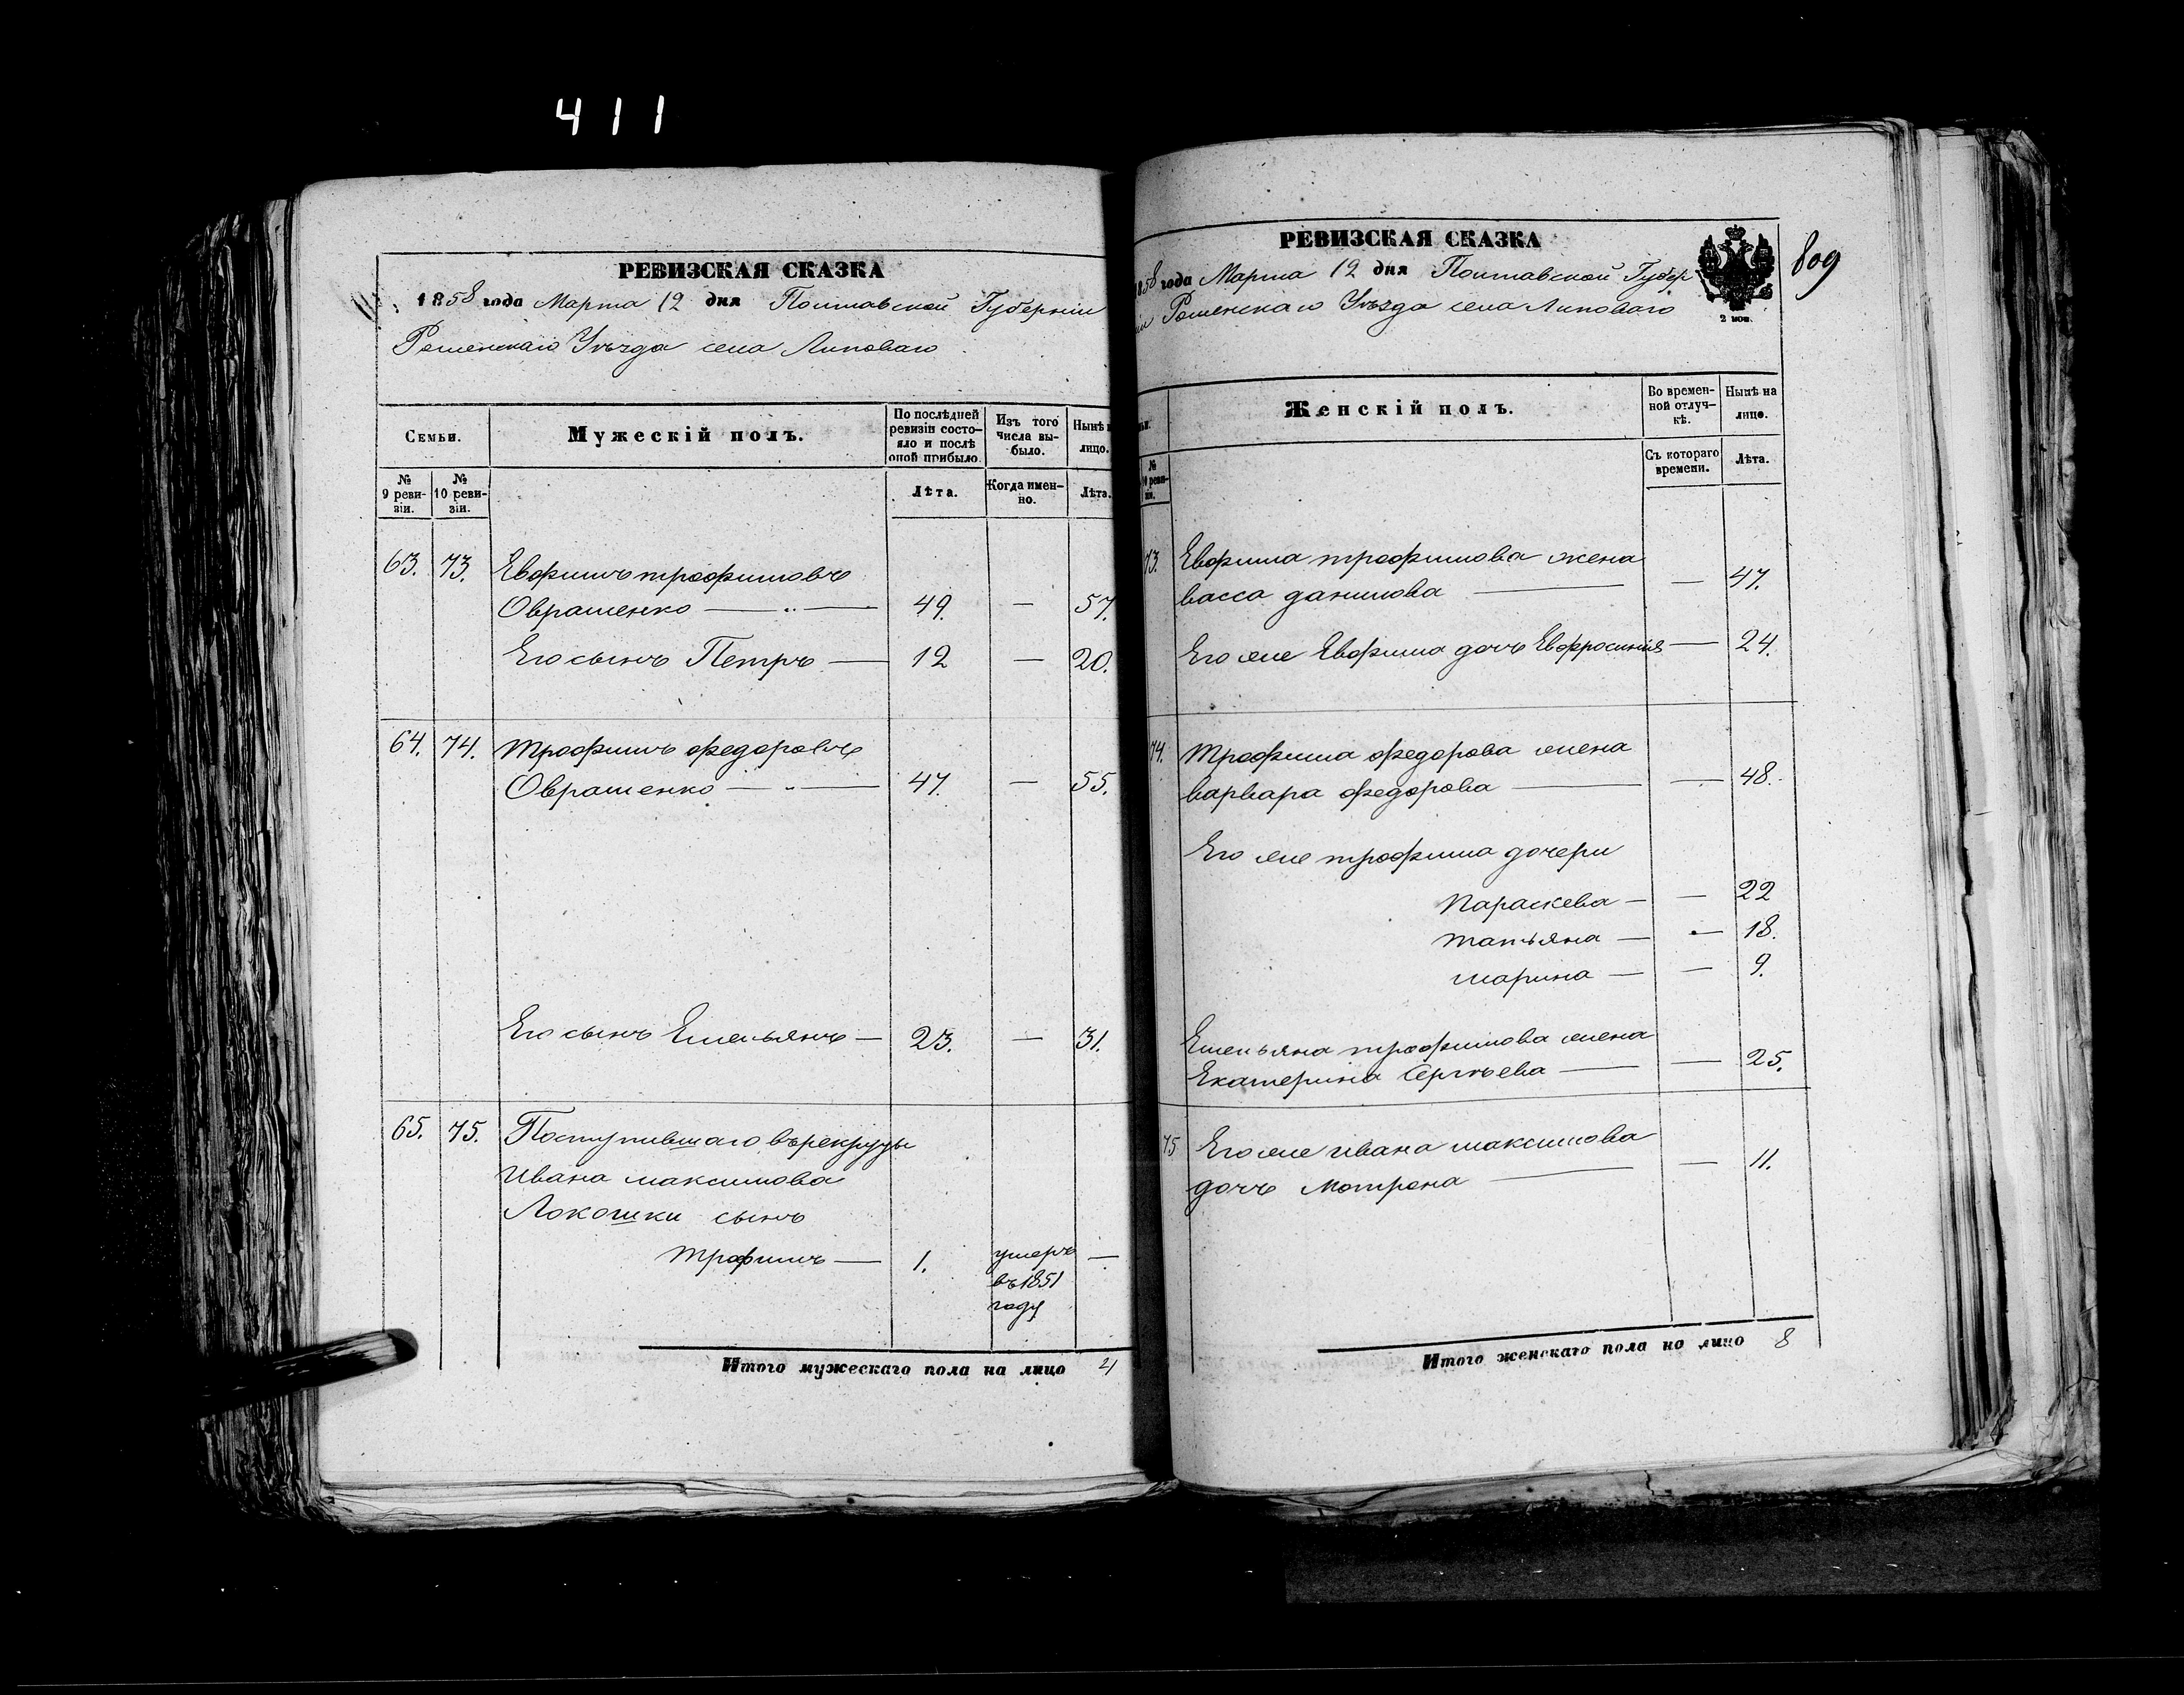 411
РЕВИЗСКАЯ СКАЗКА
1858 года Марта 12 дня Полтавской Губерніи
Роменскаго Уѣзда села Липоваго
Семьи.
Мужескій полъ.
По послѣдней ревизіи состояло и послѣ оной прибыло.
Изъ того числа выбыло.
Нынѣ
лицо.
№ 9 ревизіи.
№ 10 ревизіи.
Лѣта.
Когда именно.
Лѣта.
63. 73. Евфимъ трофимовъ
Овраменко — „ — 49. — 57.
Его сынъ Петръ — 12 — 20.
64. 74. Трофимъ федоровъ
Овраменко — „ — 47. — 55.
Его сынъ Емельянъ — 23. — 31.
65. 75. Поступившаго въ рекруты
Ивана максимова
Локошки сынъ
Трофимъ — 1. умеръ —
въ 1851
году
Итого мужескаго пола на лицо 4
РЕВИЗСКАЯ СКАЗКА
809
1858 года Марта 12 дня Полтавской Губер
ніи Роменскаго Уѣзда села Липоваго
2 коп.
Женскій полъ.
Во временной отлучкѣ.
Нынѣ на лицо.
Съ котораго времени.
Лѣта.
73. Евфима трофимова жена
васса данилова — — 47.
Его же Евфима дочь Евфросинія — 24.
74. Трофима федорова жена
варвара федорова — — 48.
Его же трофима дочери
Параскева — — 22
татьяна — — 18.
марина — — 9.
Емельяна трофимова жена
Екатерина Сергѣева — — 25.
75 Его же ивана максимова
дочь Мотрона — — 11.
Итого женскаго пола на лицо 8